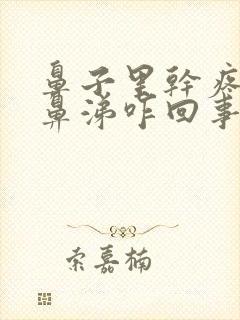 鼻子里幹疼
鼻涕咋回事
索嘉楠